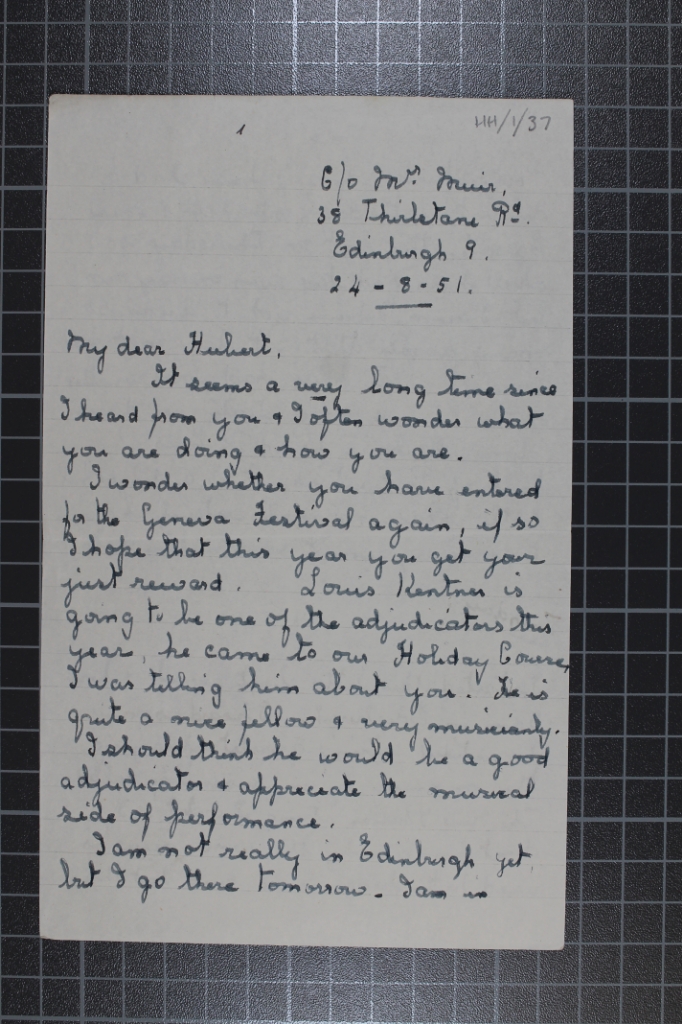 1
HH/1/37
C/o Mrs Muir,
38 Thirlstane Rd.
Edinburgh 9.
24 - 8 - 51.
My dear Hubert,
It seems a very long time since
I heard from you & I often wonder what
you are doing & how you are.
I wonder whether you have entered
for the Geneva Festival again, if so
I hope that this year you get your
just reward. Louis Kentner is
going to be one of the adjudicators this
year, he came to our Holiday Course,
I was telling him about you. He is
quite a nice fellow & very musicianly.
I should think he would be a good
adjudicator & appreciate the musical
side of performance.
I am not really in Edinburgh yet,
but I go there tomorrow. I am in